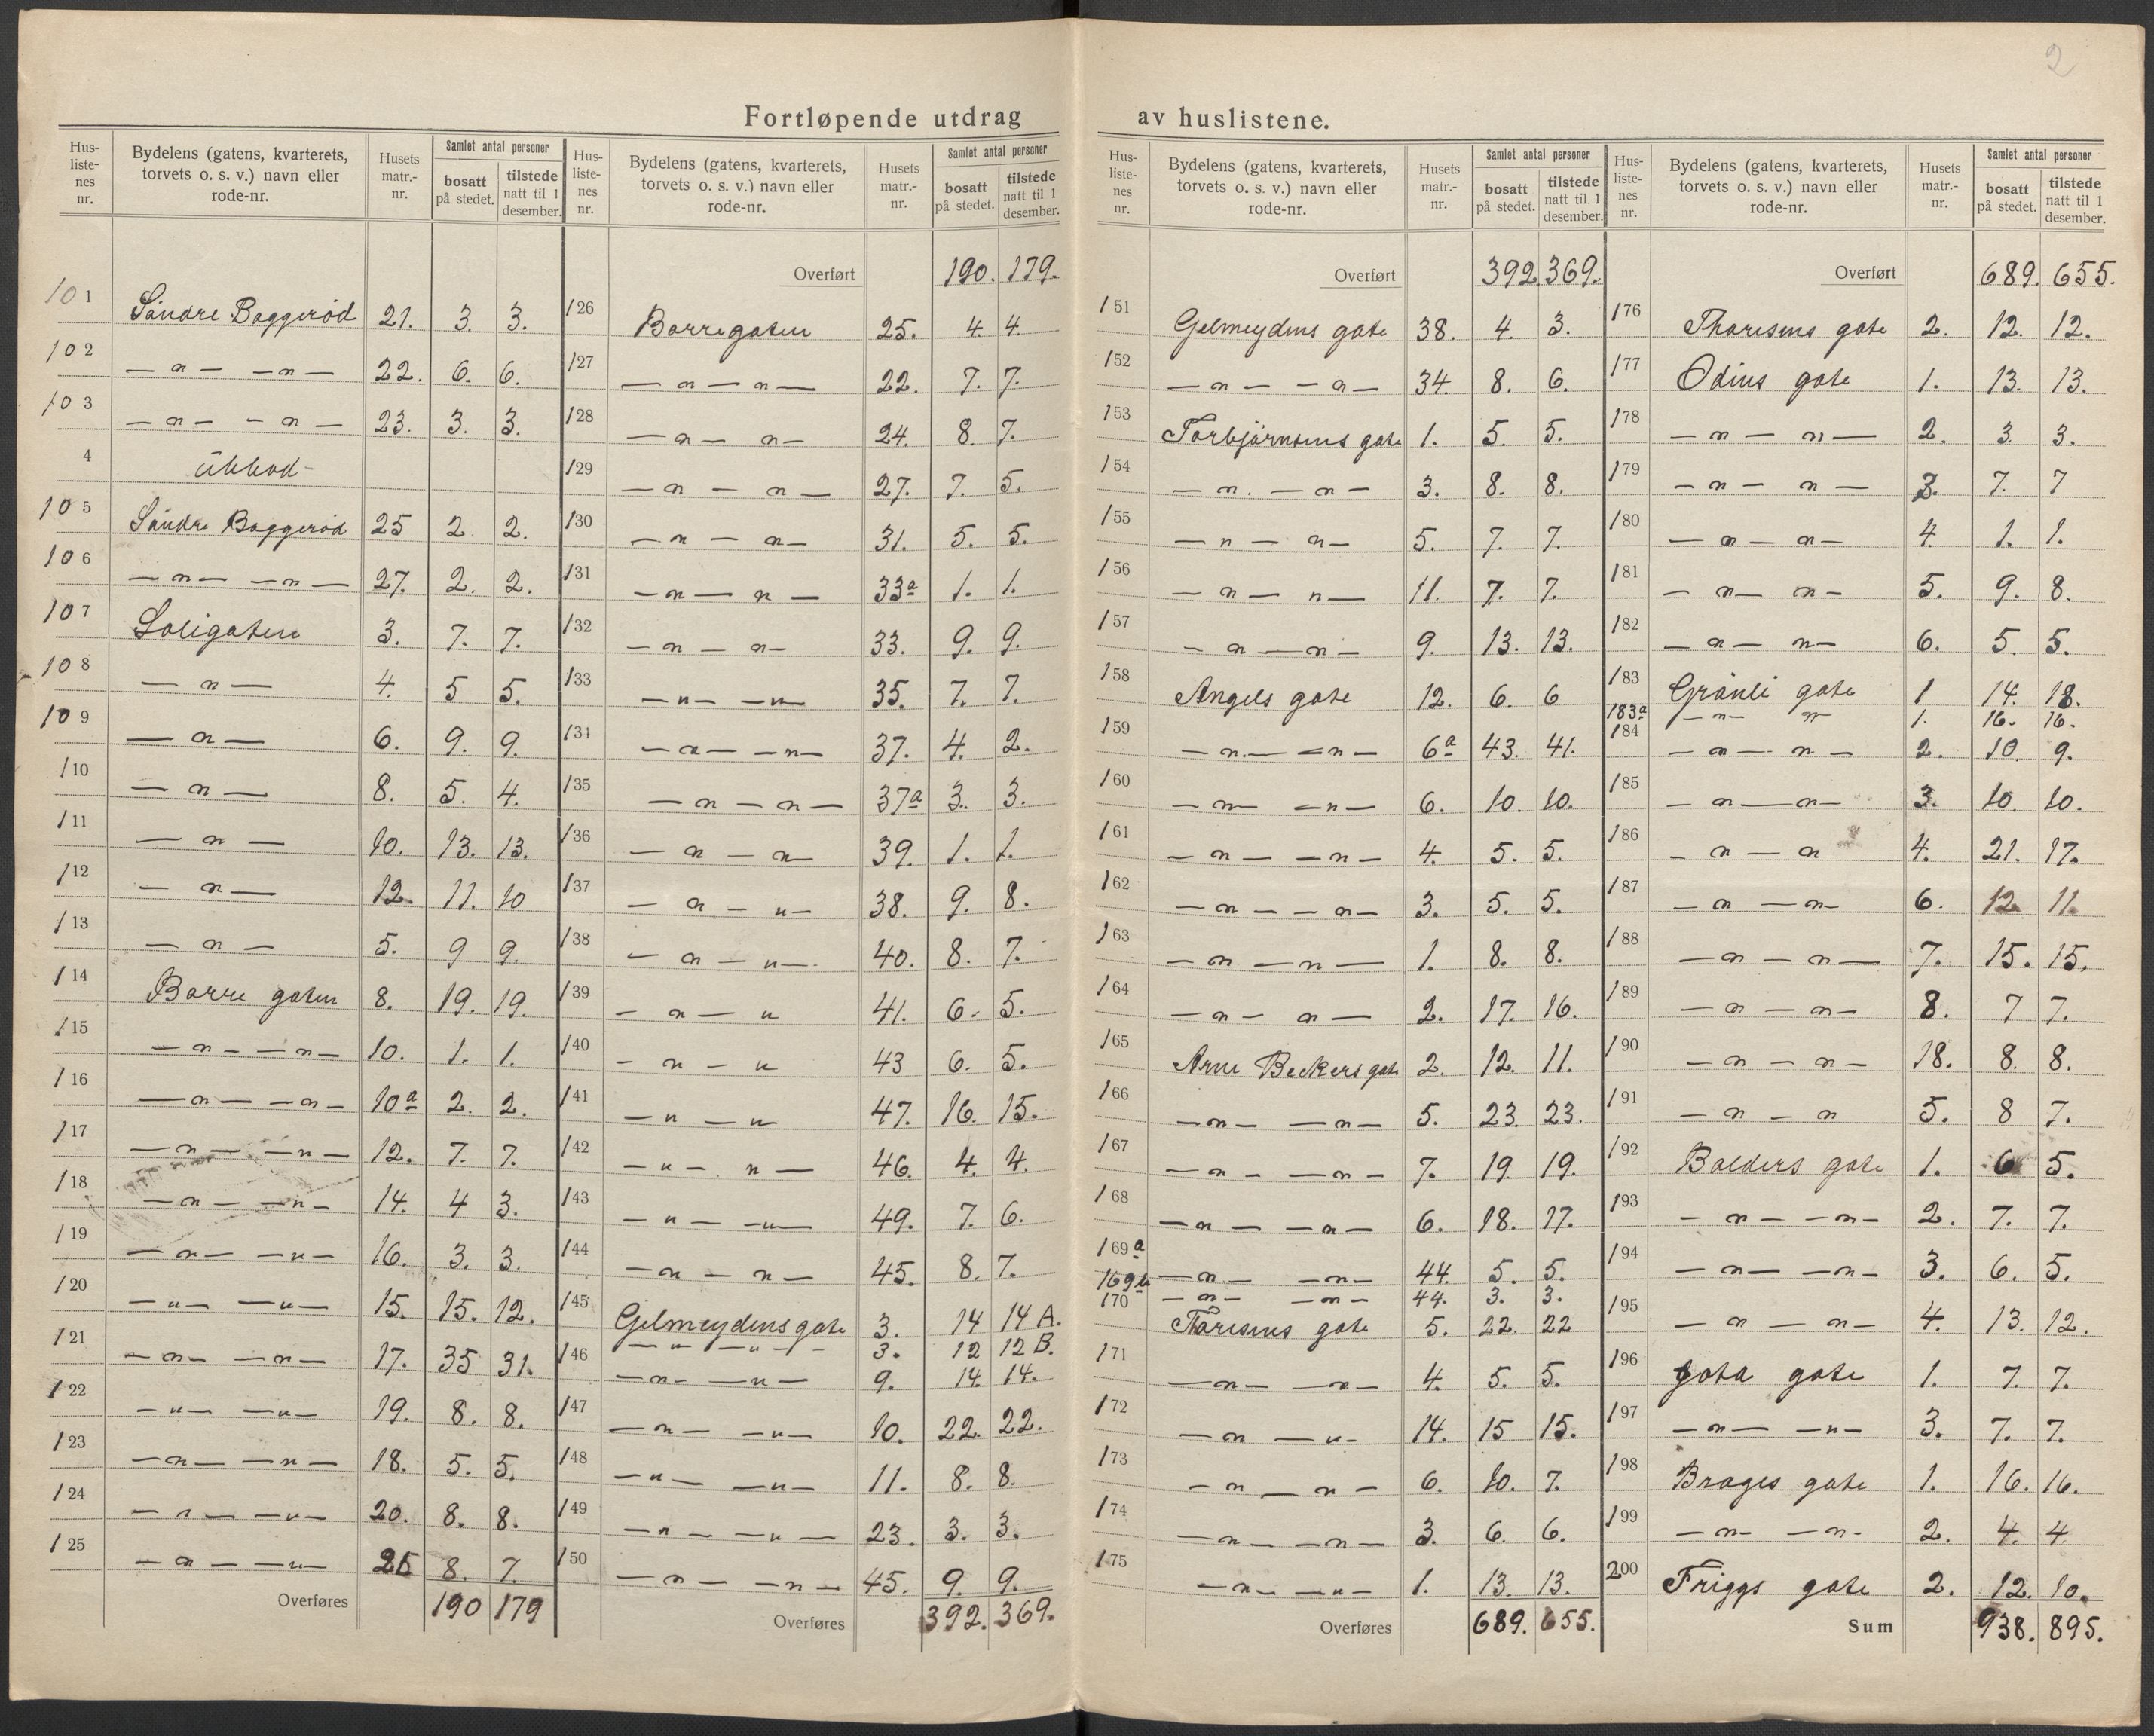 2
Fortløpende utdrag av huslistene.
Hus-liste-nes nr. Bydelens (gatens, kvarterets, torvets o. s. v.) navn eller rode-nr. Husets matr.-nr. Samlet antal personer bosatt på stedet. tilstede natt til 1 desember.
101 Söndre Baggerød 21. 3. 3.
102 — " — — " — 22. 6. 6.
103 — " — — " — 23. 3. 3.
4 ubbod
105 Söndre Baggerød 25 2 2.
106 — " — — " — 27. 2. 2.
107 Soligaten 3. 7. 7.
108 — " — 4. 5 5.
109 — " — 6. 9. 9.
110 — " — 8. 5. 4.
111 — " — 10. 13. 13.
112 — " — 12. 11. 10
113 — " — 5. 9 9.
114 Borre gaten 8. 19. 19.
115 — " — — " — 10. 1. 1.
116 — " — — " — 10a 2. 2.
117 — " — — " — 12. 7. 7.
118 — " — — " — 14. 4 3.
119 — " — — " — 16. 3. 3.
120 — " — — " — 15. 15. 12.
121 — " — — " — 17. 35 31.
122 — " — — " — 19. 8. 8.
123 — " — — " — 18. 5. 5.
124 — " — — " — 20. 8. 8.
125 — " — — " — 8. 7.
Overføres 190 179
Hus-liste-nes nr. Bydelens (gatens, kvarterets, torvets o. s. v.) navn eller rode-nr. Husets matr.-nr. Samlet antal personer bosatt på stedet. tilstede natt til 1 desember.
Overført 190. 179.
126 Borregaten 25. 4. 4.
127 — " — " — 22. 7. 7.
128 — " — " — 24. 8. 7.
129 — " — " — 27. 7. 5.
130 — " — " — 31. 5. 5.
131 — " — " — 33a 1. 1.
132 — " — " — 33. 9. 9.
133 — " — — " — 35. 7. 7.
134 — " — — " — 37. 4. 2.
135 — " — " — 37a 3. 3.
136 — " — " — 39. 1. 1.
137 — " — " — 38. 9. 8.
138 — " — " — 40. 8. 7.
139 — " — " 41. 6. 5.
140 — " — " 43 6. 5.
141 — " — " 47. 16. 15.
142 — " — " — 46. 4. 4.
143 — " — — " — 49. 7. 6.
144 — " — " — 45. 8. 7.
145 Gelmeydensgate 3. 14 14 A.
— " — " — 3. 12 12 B.
146 — " — — " — 9. 14. 14.
147 — " — — " — 10. 22. 22.
148 — " — — " — 11. 8. 8.
149 — " — — " — 23. 3. 3.
150 — " — — " — 45. 9. 9.
Overføres 392. 369.
Hus-liste-nes nr. Bydelens (gatens, kvarterets, torvets o. s. v.) navn eller rode-nr. Husets matr.-nr. Samlet antal personer bosatt på stedet. tilstede natt til 1 desember.
Overført 392. 369.
151 Gelmeydens gate 38. 4. 3.
152 — " — — " — 34. 8. 6.
153 Torbjörnsens gate 1. 5. 5.
154 — " — — " — 3. 8. 8.
155 — " — " — 5. 7. 7.
156 — " — " — 11. 7. 7.
157 — " — " — 9. 13. 13.
158 Angels gate 12. 6. 6
159 — " — — " — 6a 43. 41.
160 — " — — " — 6. 10. 10.
161 — " — — " — 4. 5. 5.
162 — " — — " — 3. 5. 5.
163 — " — " — 1. 8. 8.
164 — " — " — 2. 17. 16.
165 Arne Beckers gate 2. 12. 11.
166 — " — — " — 5. 23. 23.
167 — " — — " — 7. 19. 19.
168 — " — — " — 6. 18. 17.
169a — " — — " — 44. 5. 5.
169b — " — — " — 44. 3. 3.
170 Thoresens gate 5. 22. 22
171 — " — — " — 4. 5. 5.
172 — " — " — 14. 15 15.
173 — " — " — 6. 10. 7.
174 — " — — " — 3. 6. 6.
175 — " — — " — 1. 13. 13.
Overføres 689. 655.
Hus-liste-nes nr. Bydelens (gatens, kvarterets, torvets o. s. v.) navn eller rode-nr. Husets matr.-nr. Samlet antal personer bosatt på stedet. tilstede natt til 1 desember.
Overført 689. 655.
176 Thoresens gate 2. 12. 12.
177 Odins gate 1. 13. 13.
178 — " — " — 2. 3. 3.
179 — " — " — 3. 7. 7
180 — " — " — 4. 1. 1.
181 — " — " — 5. 9. 8.
182 — " — " — 6. 5. 5.
183 Grönli gate 1 14. 18.
183a — " — " 1. 16. 16.
184 — " — " — 2. 10. 9.
185 — " — " — 3. 10. 10.
186 — " — " 4. 21. 17.
187 — " — " — 6. 12. 11.
188 — " — " — 7. 15. 15.
189 — " — " — 8. 7 7.
190 — " — " — 18. 8. 8.
191 — " — " 5. 8 7.
192 Balders gate 1. 6 5.
193 — " — — " — 2. 7. 7.
194 — " — — " — 3. 6. 5.
195 — " — " — 4. 13. 12.
196 Gota gate 1. 7. 7.
197 — " — — " — 3. 7. 7.
198 Brages gate 1. 16. 16.
199 — " — — " — 2. 4. 4
200 Friggs gate 2. 12. 10.
Sum 938. 895.